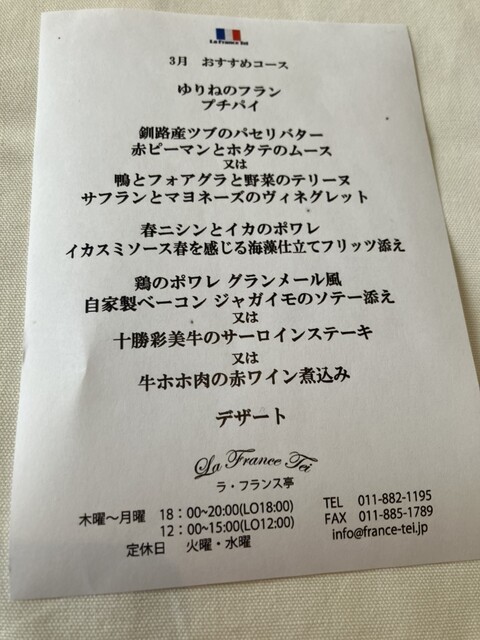 La France Tei
3月 おすすめコース
ゆりねのフラン
プチパイ
釧路産ツブのパセリバター
赤ピーマンとホタテのムース
又は
鴨とフォアグラと野菜のテリーヌ
サフランとマヨネーズのヴィネグレット
春ニシンとイカのポワレ
イカスミソース春を感じる海藻仕立てフリッツ添え
鶏のポワレ グランメール風
自家製ベーコン ジャガイモのソテー添え
又は
十勝彩美牛のサーロインステーキ
又は
牛ホホ肉の赤ワイン煮込み
デザート
La France Tei
ラ・フランス亭
木曜～月曜 18:00~20:00(LO18:00)
12:00~15:00(LO12:00)
定休日 火曜・水曜
TEL 011-882-1195
FAX 011-885-1789
info@france-tei.jp